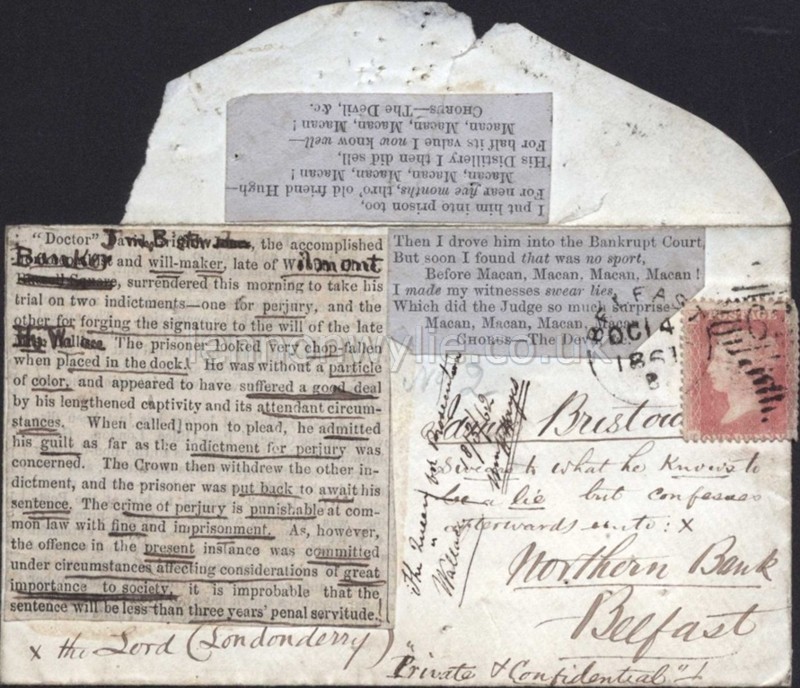 I put him into prison too,
For near five months, thro' old friend Hugh—
Macan, Macan, Macan!
His Distillery I then did sell,
For half its value I now know well—
Macan, Macan, Macan, Macan!
CHORUS—The Devil, &c.
"Doctor" David Bristow, the accomplished
Banker and will-maker, late of Wilmont
Square, surrendered this morning to take his
trial on two indictments—one for perjury, and the
other for forging the signature to the will of the late
Wallace. The prisoner looked very chop-fallen
when placed in the dock. He was without a particle
of color, and appeared to have suffered a good deal
by his lengthened captivity and its attendant circum-
stances. When called upon to plead, he admitted
his guilt as far as the indictment for perjury was
concerned. The Crown then withdrew the other in-
dictment, and the prisoner was put back to await his
sentence. The crime of perjury is punishable at com-
mon law with fine and imprisonment. As, however,
the offence in the present instance was committed
under circumstances affecting considerations of great
importance to society, it is improbable that the
sentence will be less than three years' penal servitude.
x the Lord (Londonderry)
Then I drove him into the Bankrupt Court,
But soon I found that was no sport,
Before Macan, Macan, Macan, Macan!
I made my witnesses swear lies,
Which did the Judge so much surprise
Macan, Macan, Macan, Macan
CHORUS—The Devil
BELFAST
OC 14
1861
POSTAGE
The Queen on Prosecution
v
Wallace
Bristow
Swears to what he Knows to
be a lie but confesses
afterwards unto: x
Northern Bank
Belfast
"Private & Confidential"